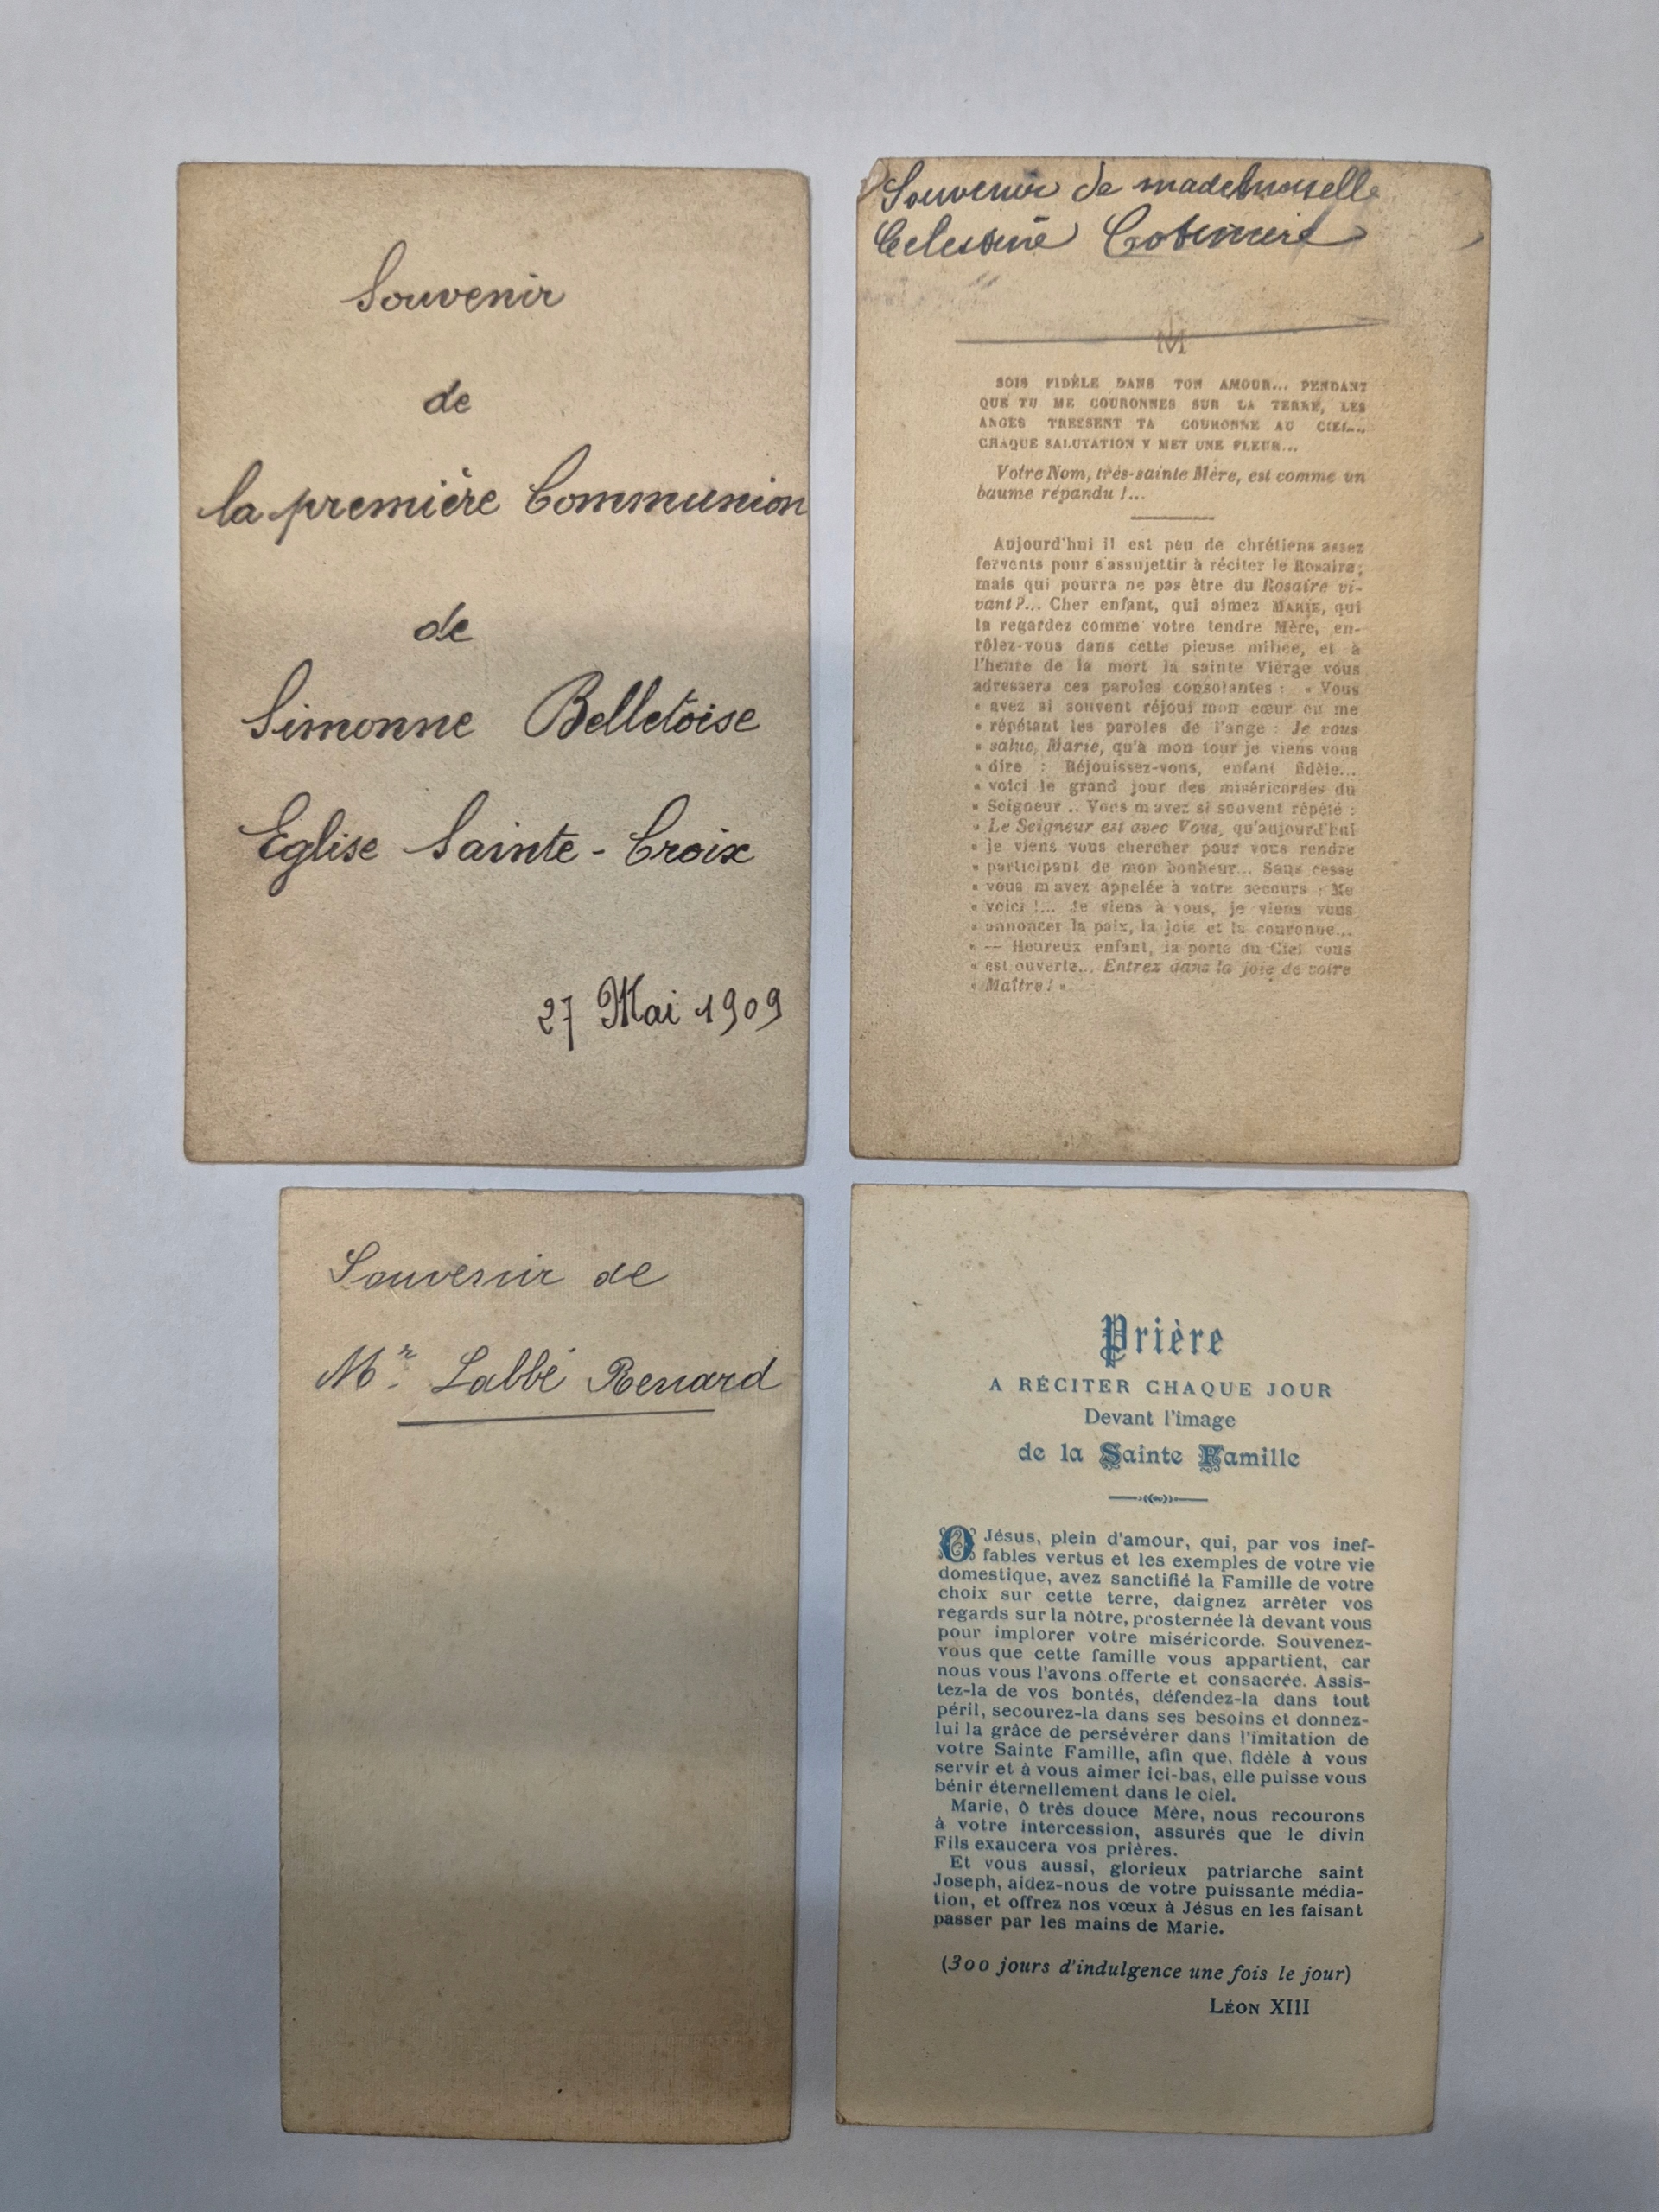 Souvenir
de
la première Communion
de
Simonne Belletoise
Eglise Sainte-Croix
27 Mai 1909
Souvenir de mademoiselle
Celestine
M
SOIS FIDÈLE DANS TON AMOUR... PENDANT
QUE TU ME COURONNES SUR LA TERRE, LES
ANGES TRESSENT TA COURONNE AU CIEL...
CHAQUE SALUTATION Y MET UNE FLEUR...
Votre Nom, très-sainte Mère, est comme un
baume répandu !...
Aujourd'hui il est peu de chrétiens assez
fervents pour s'assujettir à réciter le Rosaire;
mais qui pourra ne pas être du Rosaire vi-
vant ?... Cher enfant, qui aimez MARIE, qui
la regardez comme votre tendre Mère, en-
rôlez-vous dans cette pieuse milice, et à
l'heure de la mort la sainte Vierge vous
adressera ces paroles consolantes : « Vous
« avez si souvent réjoui mon cœur en me
« répétant les paroles de l'ange : Je vous
« salue, Marie, qu'à mon tour je viens vous
« dire : Réjouissez-vous, enfant fidèle...
« voici le grand jour des miséricordes du
« Seigneur .. Vous m'avez si souvent répété :
« Le Seigneur est avec Vous, qu'aujourd'hui
« je viens vous chercher pour vous rendre
« participant de mon bonheur... Sans cesse
« vous m'avez appelée à votre secours : Me
« voici !... Je viens à vous, je viens vous
« annoncer la paix, la joie et la couronne...
« — Heureux enfant, la porte du Ciel vous
« est ouverte... Entrez dans la joie de votre
« Maître ! »
Souvenir de
Mr. Labbé Renard
Prière
A RÉCITER CHAQUE JOUR
Devant l'image
de la Sainte Famille
O Jésus, plein d'amour, qui, par vos inef-
fables vertus et les exemples de votre vie
domestique, avez sanctifié la Famille de votre
choix sur cette terre, daignez arrêter vos
regards sur la nôtre, prosternée là devant vous
pour implorer votre miséricorde. Souvenez-
vous que cette famille vous appartient, car
nous vous l'avons offerte et consacrée. Assis-
tez-la de vos bontés, défendez-la dans tout
péril, secourez-la dans ses besoins et donnez-
lui la grâce de persévérer dans l'imitation de
votre Sainte Famille, afin que, fidèle à vous
servir et à vous aimer ici-bas, elle puisse vous
bénir éternellement dans le ciel.
Marie, ô très douce Mère, nous recourons
à votre intercession, assurés que le divin
Fils exaucera vos prières.
Et vous aussi, glorieux patriarche saint
Joseph, aidez-nous de votre puissante média-
tion, et offrez nos vœux à Jésus en les faisant
passer par les mains de Marie.
(300 jours d'indulgence une fois le jour)
LÉON XIII